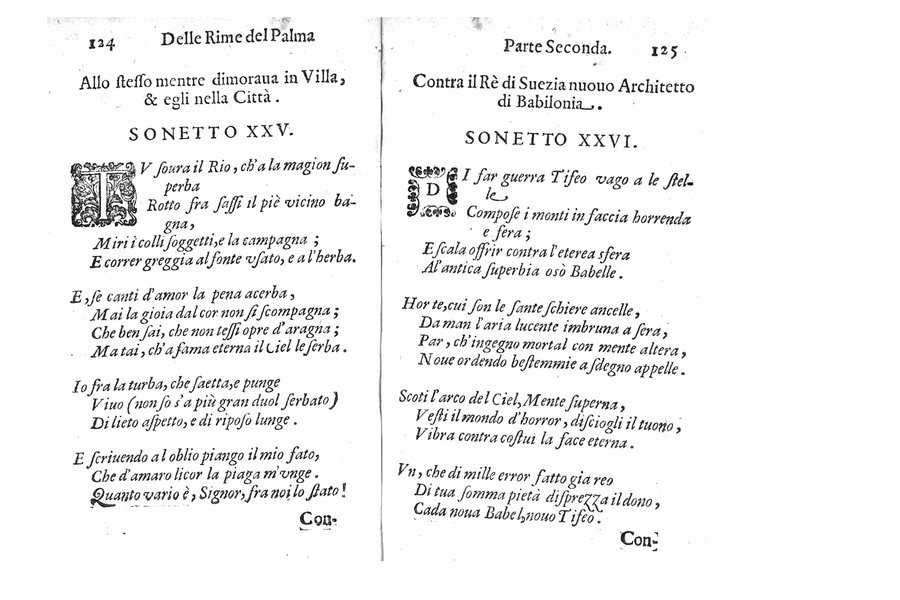 124 Delle Rime del Palma
Allo ſteſſo mentre dimoraua in Villa,
& egli nella Città.
SONETTO XXV.
TV ſoura il Rio, ch'a la magion ſu-
perba
Rotto fra ſaſſi il piè vicino ba-
gna,
Miri i colli ſoggetti, e la campagna;
E correr greggia al fonte vſato, e a l'herba.
E, ſe canti d'amor la pena acerba,
Mai la gioia dal cor non ſi ſcompagna;
Che ben ſai, che non teſſi opre d'aragna;
Ma tai, ch'a fama eterna il Ciel le ſerba.
Io fra la turba, che ſaetta, e punge
Viuo (non ſo s'a più gran duol ſerbato)
Di lieto aſpetto, e di ripoſo lunge.
E ſcriuendo al oblio piango il mio fato,
Che d'amaro licor la piaga m'vnge.
Quanto vario è, Signor, fra noi lo ſtato!
Con-
Parte Seconda. 125
Contra il Rè di Suezia nuouo Architetto
di Babilonia.
SONETTO XXVI.
DI far guerra Tifeo vago a le ſtel-
le
Compoſe i monti in faccia horrenda
e fera;
E ſcala offrir contra l'eterea sfera
Al'antica ſuperbia osò Babelle.
Hor te, cui ſon le ſante ſchiere ancelle,
Da man l'aria lucente imbruna a ſera,
Par, ch'ingegno mortal con mente altera,
Noue ordendo beſtemmie a ſdegno appelle.
Scoti l'arco del Ciel, Mente ſuperna,
Veſti il mondo d'horror, diſciogli il tuono,
Vibra contra coſtui la face eterna.
Vn, che di mille error fatto gia reo
Di tua ſomma pietà diſprezza il dono,
Cada noua Babel, nouo Tifeo.
Con-